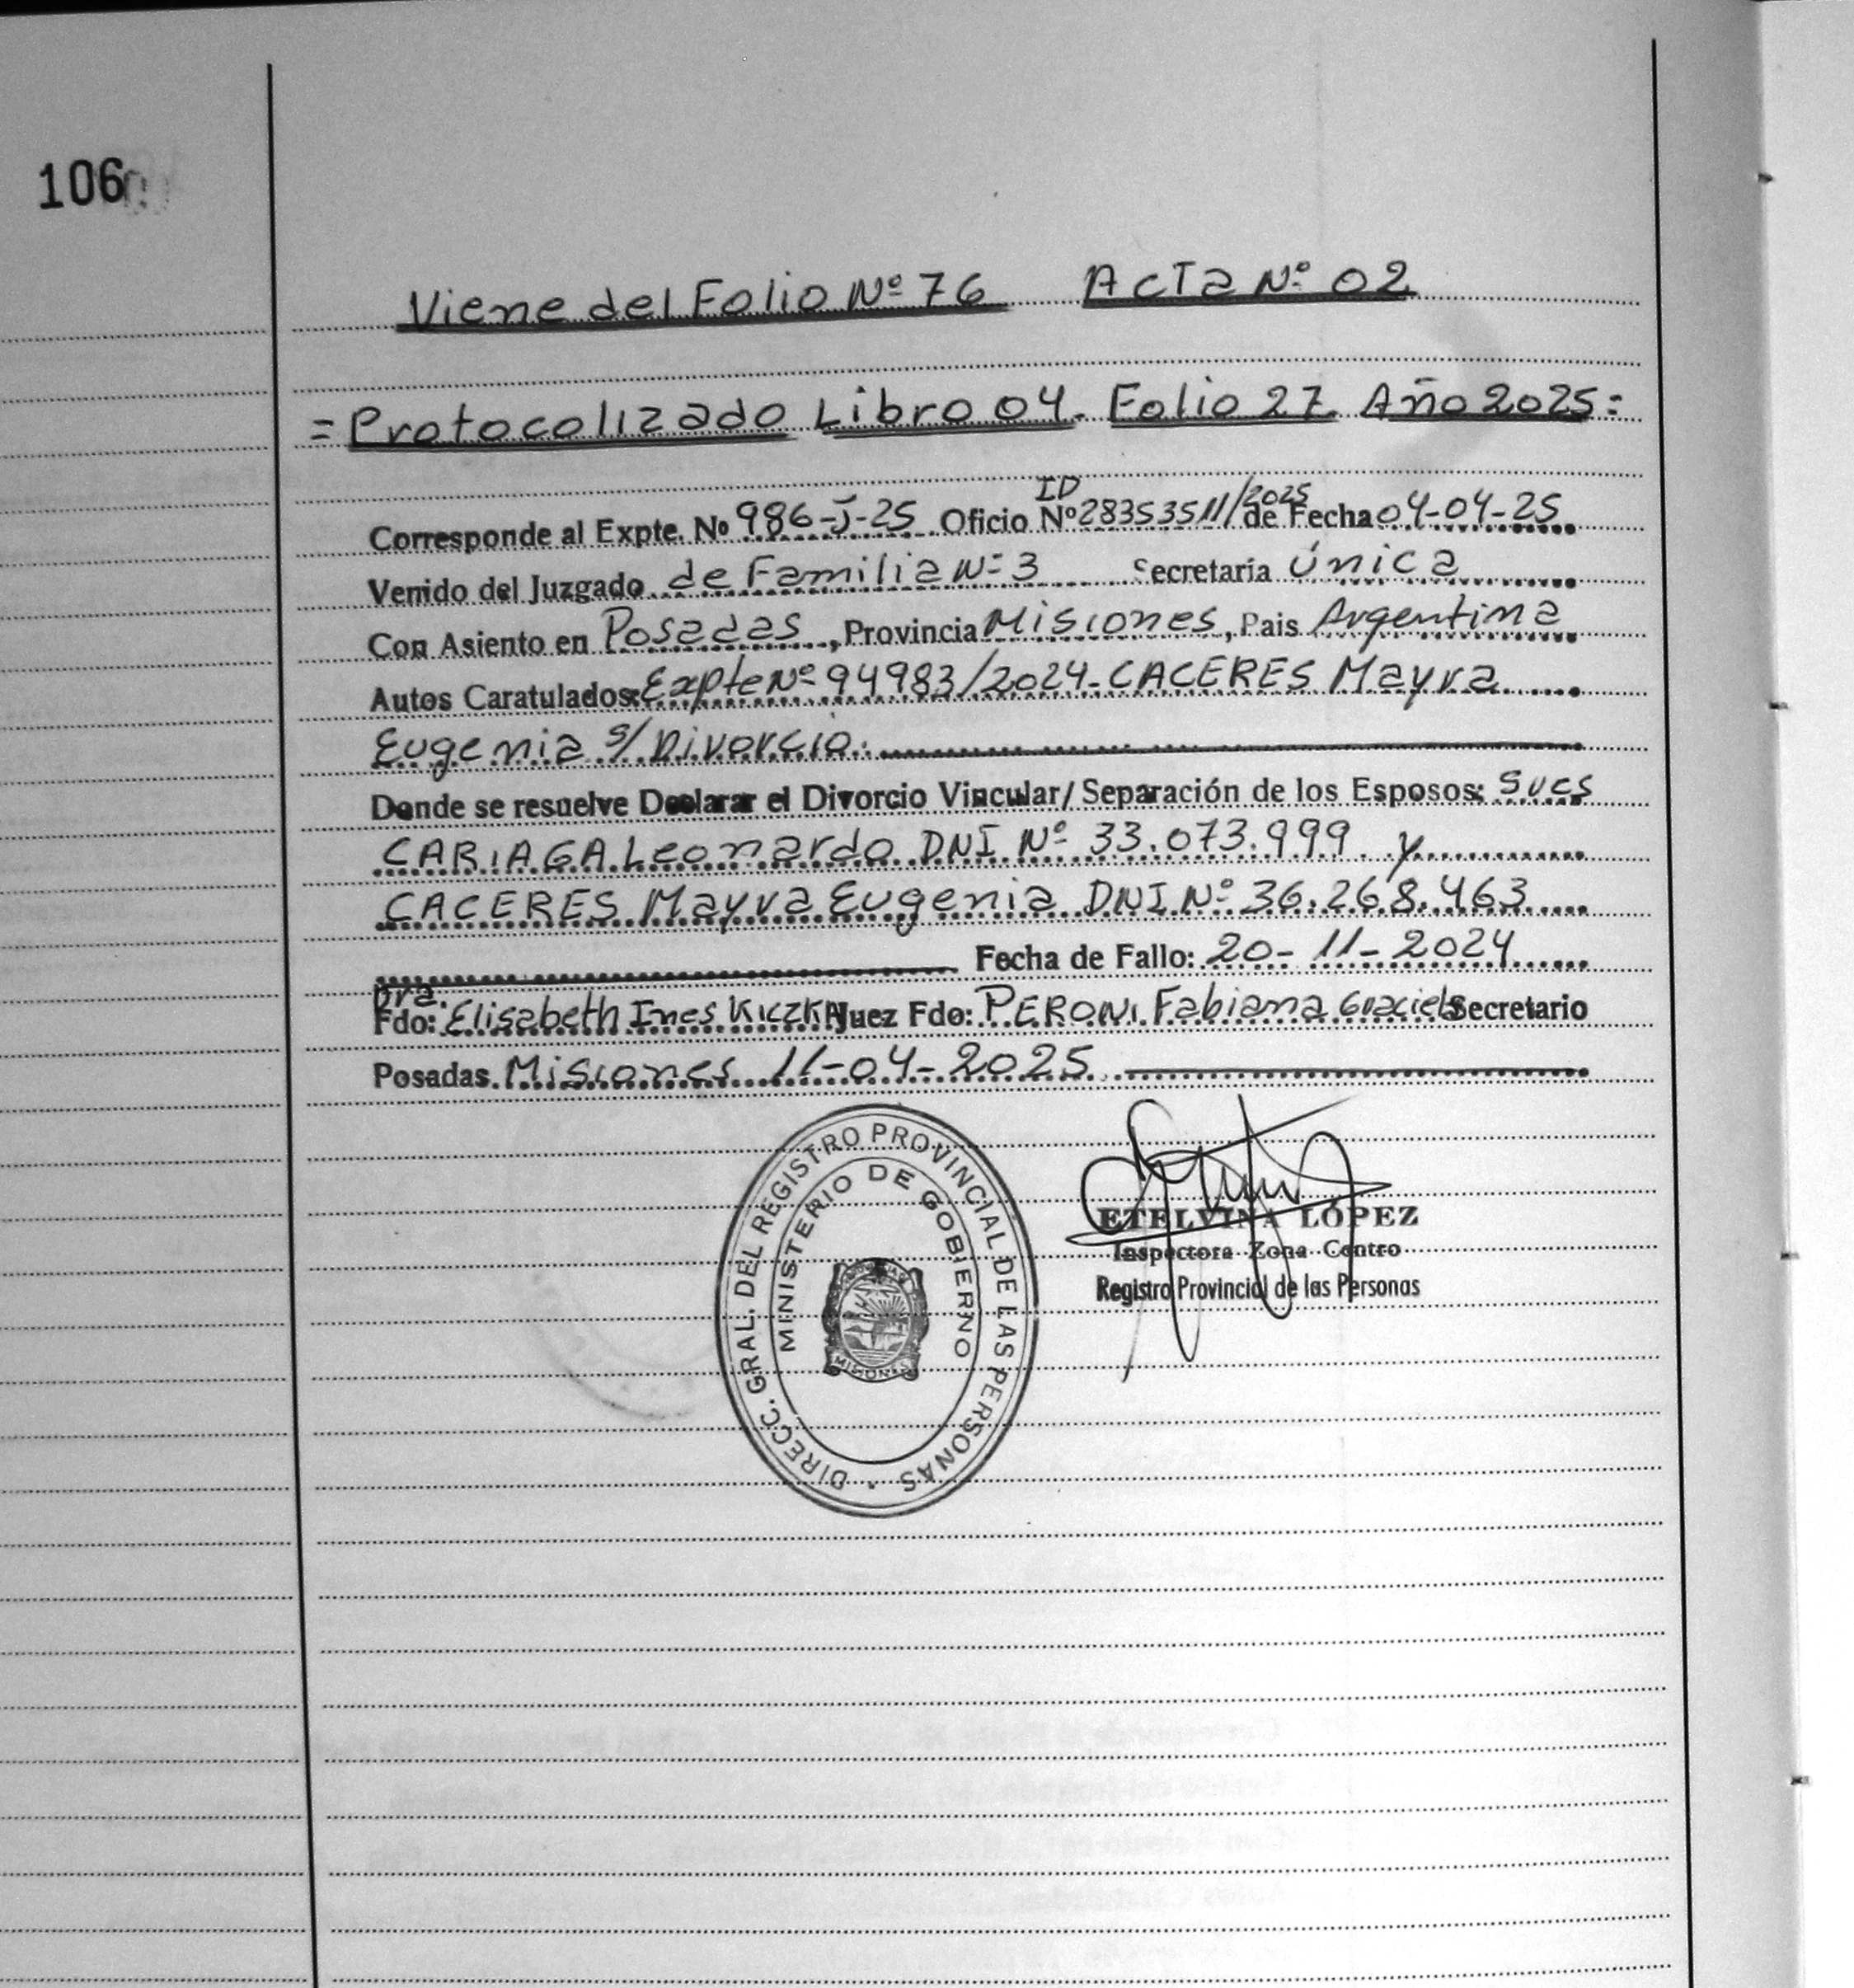 106
Viene del Folio Nº 76 Acta Nº 02
= Protocolizado Libro 04. Folio 27. Año 2025 =
Corresponde al Expte. Nº 986-J-25 Oficio Nº ID 28353511/2025 de Fecha 04-04-25
Venido del Juzgado de Familia Nº 3 Secretaria Única
Con Asiento en Posadas, Provincia Misiones, Pais Argentina
Autos Caratulados: Expte Nº 94983/2024- CACERES Mayra
Eugenia s/ Divorcio.
Donde se resuelve Declarar el Divorcio Vincular/ Separación de los Esposos: Sres
CARIAGA Leonardo DNI Nº 33.073.999 y
CACERES Mayra Eugenia DNI Nº 36.268.463
Fecha de Fallo: 20-11-2024
Fdo: Dra. Elisabeth Ines KICZKA Juez Fdo: PERONI Fabiana Graciela Secretario
Posadas. Misiones 11-04-2025
DIRECC. GRAL. DEL REGISTRO PROVINCIAL DE LAS PERSONAS
MINISTERIO DE GOBIERNO
MISIONES
ETELVINA LÓPEZ
Inspectora Zona Centro
Registro Provincial de las Personas